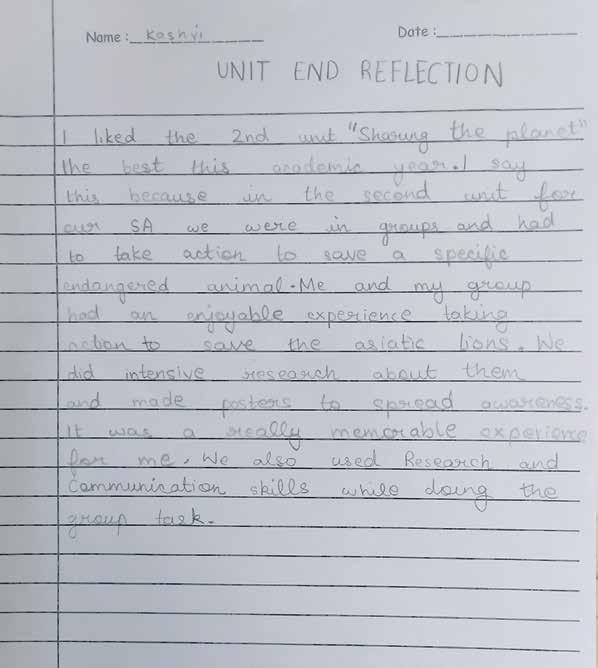 Name : Kashvi Date :
UNIT END REFLECTION
I liked the 2nd unit "Sharing the planet"
the best this academic year. I say
this because in the second unit for
our SA we were in groups and had
to take action to save a specific
endangered animal. Me and my group
had an enjoyable experience taking
action to save the asiatic lions. We
did intensive research about them
and made posters to spread awareness.
It was a really memorable experience
for me. We also used Research and
Communication skills while doing the
group task.